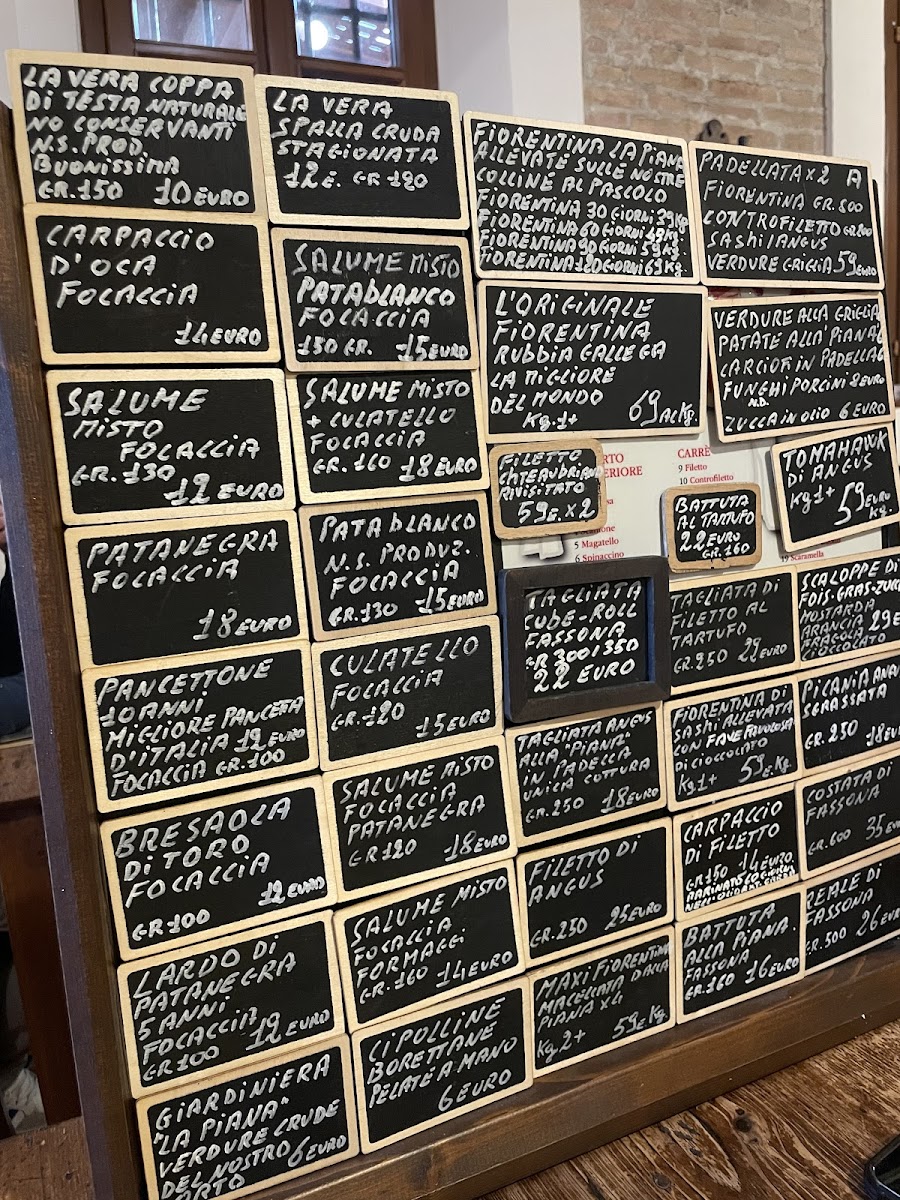 LA VERA COPPA
DI TESTA NATURALE
NO CONSERVANTI
N.S. PROD.
BUONISSIMA
GR.150 10 EURO
CARPACCIO
D'OCA
FOCACCIA
14 EURO
SALUME
MISTO
FOCACCIA
GR.130
12 EURO
PATANEGRA
FOCACCIA
18 EURO
PANCETTONE
10 ANNI
MIGLIORE PANCETTA
D'ITALIA 12 EURO
FOCACCIA GR.100
BRESAOLA
DI TORO
FOCACCIA
12 EURO
GR 100
LARDO DI
PATANEGRA
5 ANNI
FOCACCIA
GR 100 12 EURO
GIARDINIERA
"LA PIANA"
VERDURE CRUDE
DEL NOSTRO 6 EURO
ORTO
LA VERA
SPALLA CRUDA
STAGIONATA
12 E. GR 120
SALUME MISTO
PATABLANCO
FOCACCIA
130 GR. 15 EURO
SALUME MISTO
+ CULATELLO
FOCACCIA
GR. 160 18 EURO
PATABLANCO
N.S. PRODUZ.
FOCACCIA
GR.130 15 EURO
CULATELLO
FOCACCIA
GR.120
15 EURO
SALUME MISTO
FOCACCIA
PATANEGRA
GR 120 18 EURO
SALUME MISTO
FOCACCIA
FORMAGGI
GR.160 14 EURO
CIPOLLINE
BORETTANE
PELATE A MANO
6 EURO
FIORENTINA LA PIANA
ALLEVATE SULLE NOSTRE
COLLINE AL PASCOLO
FIORENTINA 30 GIORNI 39 KG
FIORENTINA 60 GIORNI 49 KG
FIORENTINA 90 GIORNI 59 KG
FIORENTINA 120 GIORNI 69 KG.
PADELLATA X 2 A
FIORENTINA GR.500
CONTROFILETTO GR 200
SASHI ANGUS
VERDURE GRIGLIA 59 EURO
L'ORIGINALE
FIORENTINA
RUBBIA GALLEGA
LA MIGLIORE
DEL MONDO
Kg.1+ 69 AL Kg.
VERDURE ALLA GRIGLIA
PATATE ALLA PIANA
CARCIOFI IN PADELLA
FUNGHI PORCINI 8 EURO
N.D.
ZUCCA IN OLIO 6 EURO
FILETTO
CHTEAUBRIAND
RIVISITATO
59 E. X 2
CARRÈ
9 Filetto
10 Controfiletto
5 Magatello
6 Spinaccino
19 Scaramella
BATTUTA
AL TARTUFO
22 EURO
GR.160
TOMAHAWK
DI ANGUS
Kg 1+ 59 EURO
KG.
TAGLIATA
CUBE-ROLL
FASSONA
GR 300/350
22 EURO
TAGLIATA DI
FILETTO AL
TARTUFO
GR.250 29 EURO
SCALOPPE DI
FOIS-GRAS-ZUCC
MOSTARDA 29 E
ARANCIA
ARAGOLA
CIOCCOLATO
TAGLIATA ANGUS
ALLA "PIANTZ"
IN PADELLA
UNICA COTTURA
GR.250 18 EURO
FIORENTINA DI
SASHI ALLEVATA
CON FAVE FAVOLOSA
DI CIOCCOLATO
Kg.1+ 59 E. Kg.
PICANIA ANGU
SGRASSATA
GR. 250 18 EU
FILETTO DI
ANGUS
GR.250 25 EURO
CARPACCIO
DI FILETTO
GR 150 14 EURO
COSTATA DI
FASSONA
GR.600 35 EU
MAXI FIORENTINA
MACELLATA DALLA
PIANA X4
Kg 2+ 59 E. Kg.
BATTUTA
ALLA PIANA.
FASSONA
GR.160 16 EURO
REALE DI
FASSONA
GR.500 26 EU